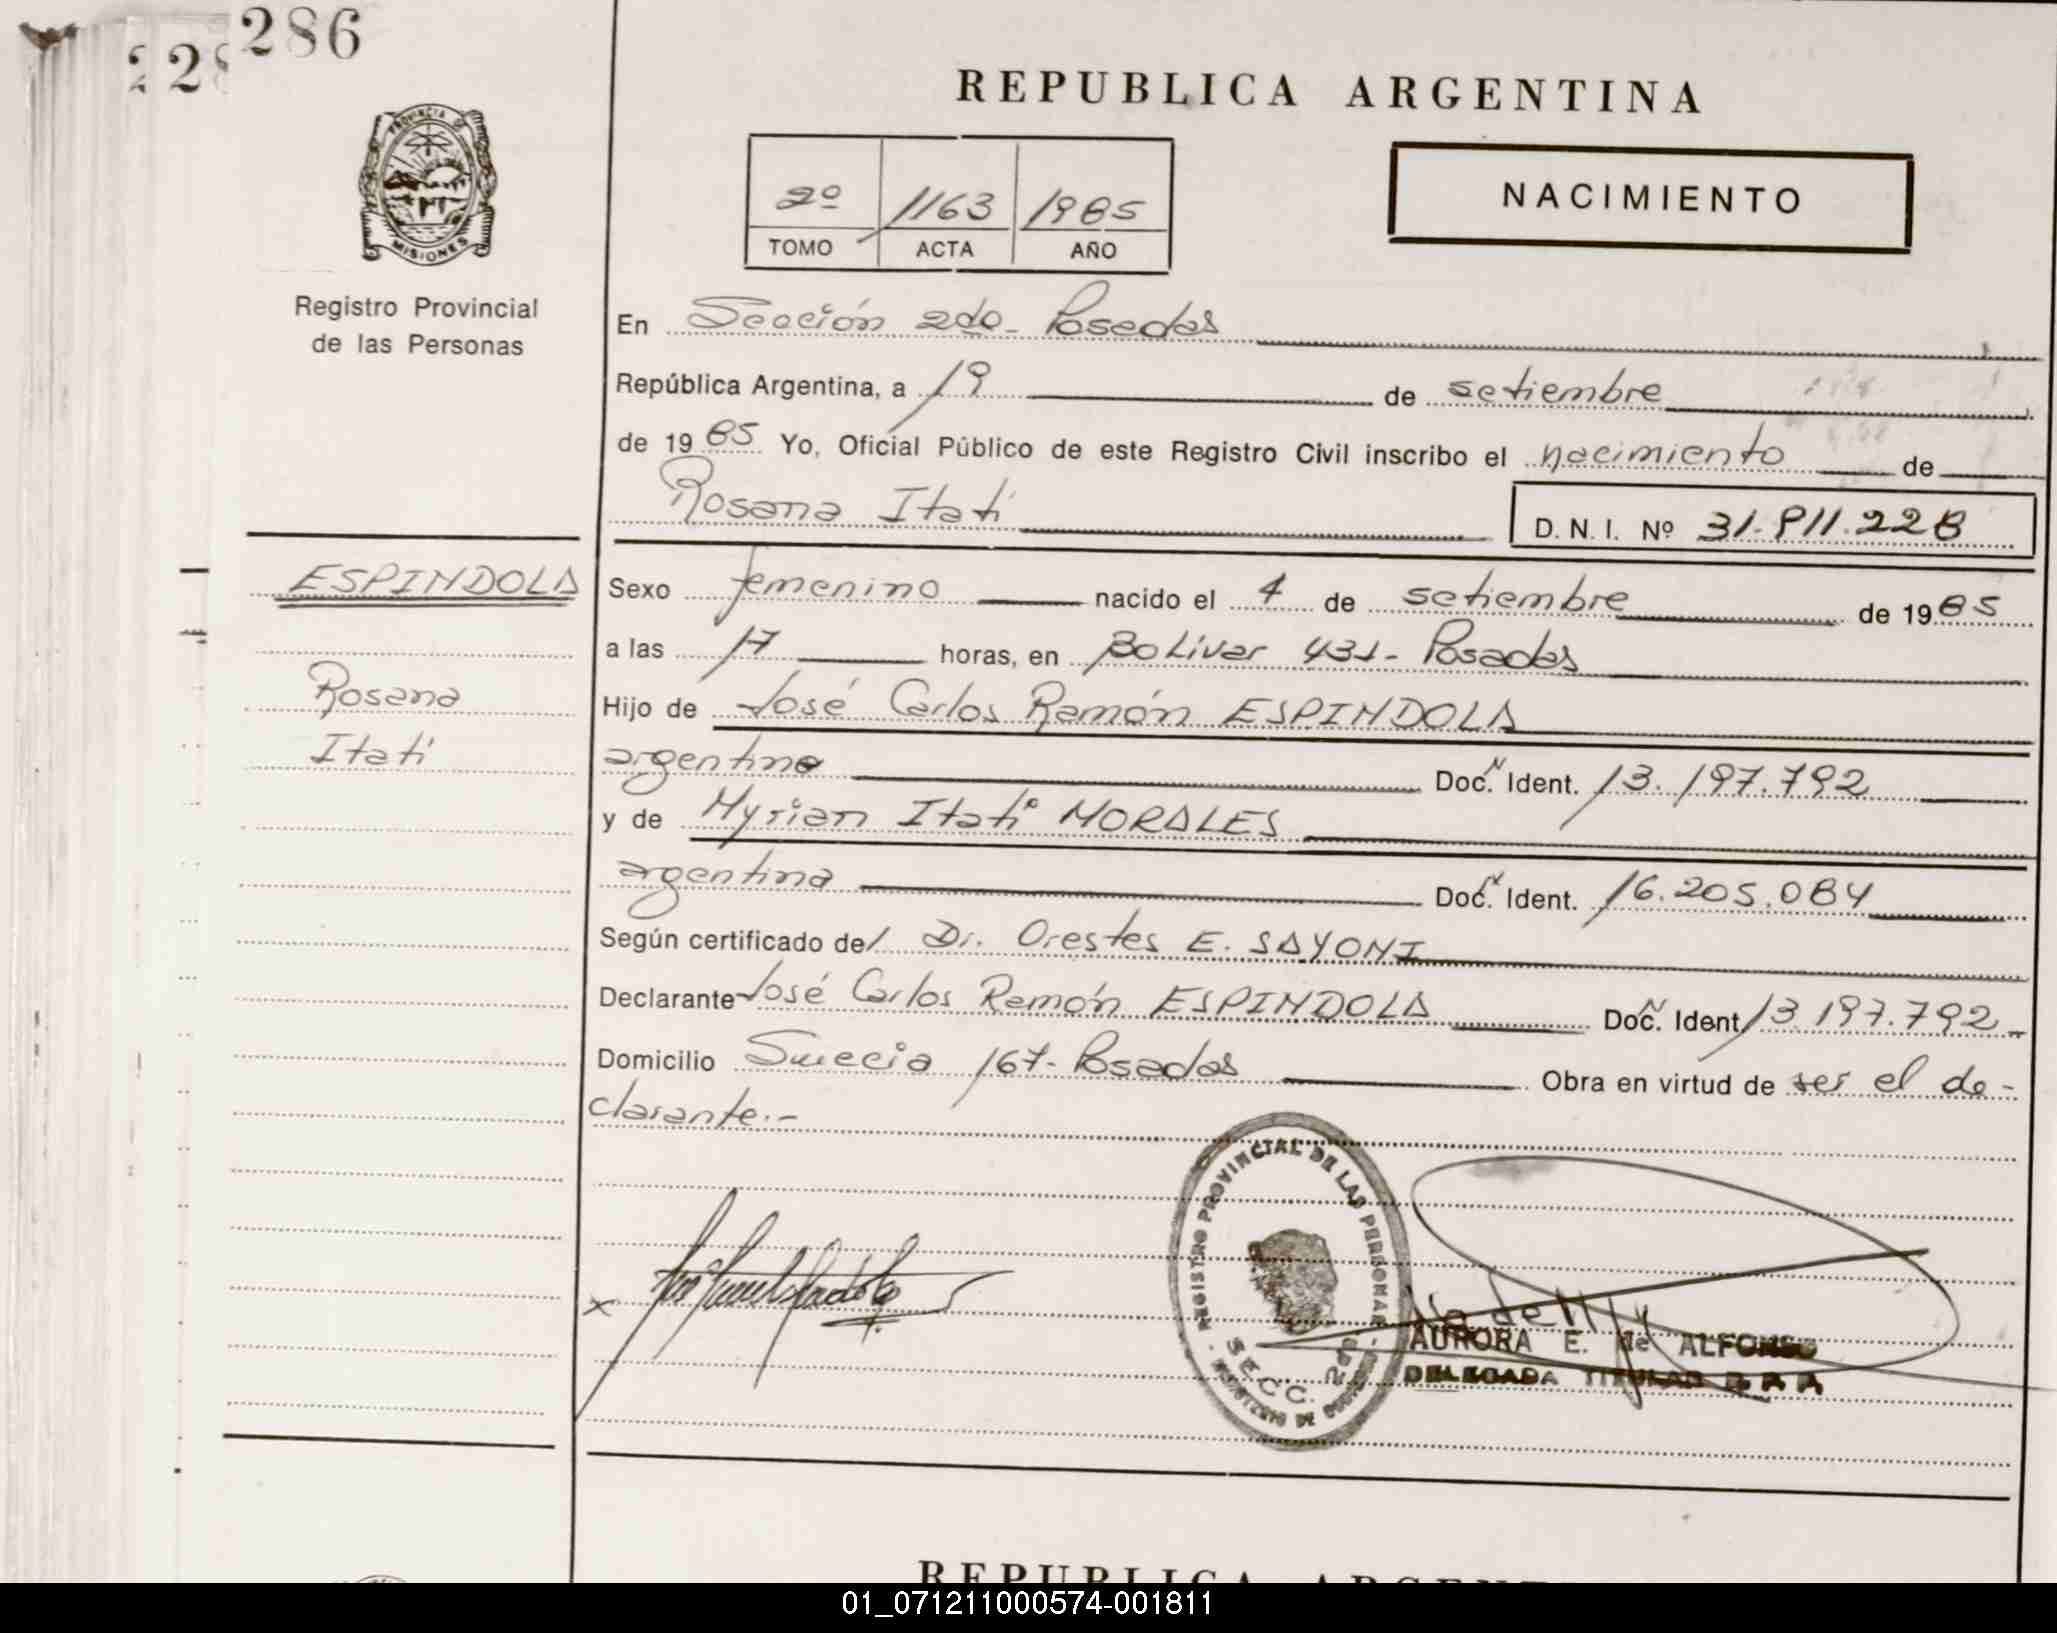 286
228
REPUBLICA ARGENTINA
PROVINCIA DE
MISIONES
Registro Provincial
de las Personas
2º 1163 1985
TOMO ACTA AÑO
NACIMIENTO
En Sección 2da- Posadas
República Argentina, a 19 de setiembre
de 1985 Yo, Oficial Público de este Registro Civil inscribo el nacimiento de
Rosana Itati
D. N. I. Nº 31.911.228
ESPINDOLA
Rosana
Itati
Sexo femenino nacido el 4 de setiembre de 1985
a las 17 horas, en Bolivar 431- Posadas
Hijo de José Carlos Ramón ESPINDOLA
argentino Doc. N Ident. 13.197.792
y de Myrian Itati MORALES
argentina Doc. N Ident. 16.205.084
Según certificado del Dr. Orestes E. SAYONI
Declarante José Carlos Ramón ESPINDOLA Doc. N Ident 13.197.792-
Domicilio Suecia 167- Posadas Obra en virtud de ser el de-
clarante.-
REGISTRO PROVINCIAL DE LAS PERSONAS
SECC. 2da
MINISTERIO DE GOBIERNO
x
AURORA E. de ALFONSO
DELEGADA TITULAR
REPUBLICA ARGENT
01_071211000574-001811